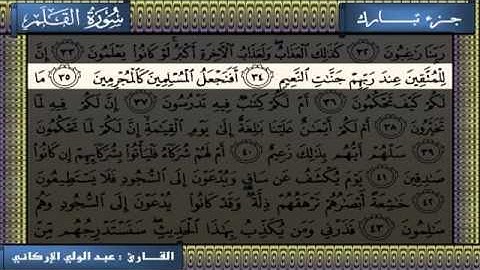 جزء تبارك
سُورَةُ القَلَمِ
رَبِّنَا رَٰغِبُونَ ٣٢ كَذَٰلِكَ ٱلْعَذَابُ وَلَعَذَابُ ٱلْأَخِرَةِ أَكْبَرُ لَوْ كَانُوا۟ يَعْلَمُونَ ٣٣ إِنَّ
لِلْمُتَّقِينَ عِندَ رَبِّهِمْ جَنَّٰتِ ٱلنَّعِيمِ ٣٤ أَفَنَجْعَلُ ٱلْمُسْلِمِينَ كَٱلْمُجْرِمِينَ ٣٥ مَا
لَكُمْ كَيْفَ تَحْكُمُونَ ٣٦ أَمْ لَكُمْ كِتَٰبٌ فِيهِ تَدْرُسُونَ ٣٧ إِنَّ لَكُمْ فِيهِ لَمَا
تَخَيَّرُونَ ٣٨ أَمْ لَكُمْ أَيْمَٰنٌ عَلَيْنَا بَٰلِغَةٌ إِلَىٰ يَوْمِ ٱلْقِيَٰمَةِ إِنَّ لَكُمْ لَمَا تَحْكُمُونَ
٣٩ سَلْهُمْ أَيُّهُم بِذَٰلِكَ زَعِيمٌ ٤٠ أَمْ لَهُمْ شُرَكَآءُ فَلْيَأْتُوا۟ بِشُرَكَآئِهِمْ إِن كَانُوا۟
صَٰدِقِينَ ٤١ يَوْمَ يُكْشَفُ عَن سَاقٍ وَيُدْعَوْنَ إِلَى ٱلسُّجُودِ فَلَا يَسْتَطِيعُونَ
٤٢ خَٰشِعَةً أَبْصَٰرُهُمْ تَرْهَقُهُمْ ذِلَّةٌ وَقَدْ كَانُوا۟ يُدْعَوْنَ إِلَى ٱلسُّجُودِ وَهُمْ
سَٰلِمُونَ ٤٣ فَذَرْنِى وَمَن يُكَذِّبُ بِهَٰذَا ٱلْحَدِيثِ سَنَسْتَدْرِجُهُم مِّنْ
القارئ : عبد الولي الإركاني